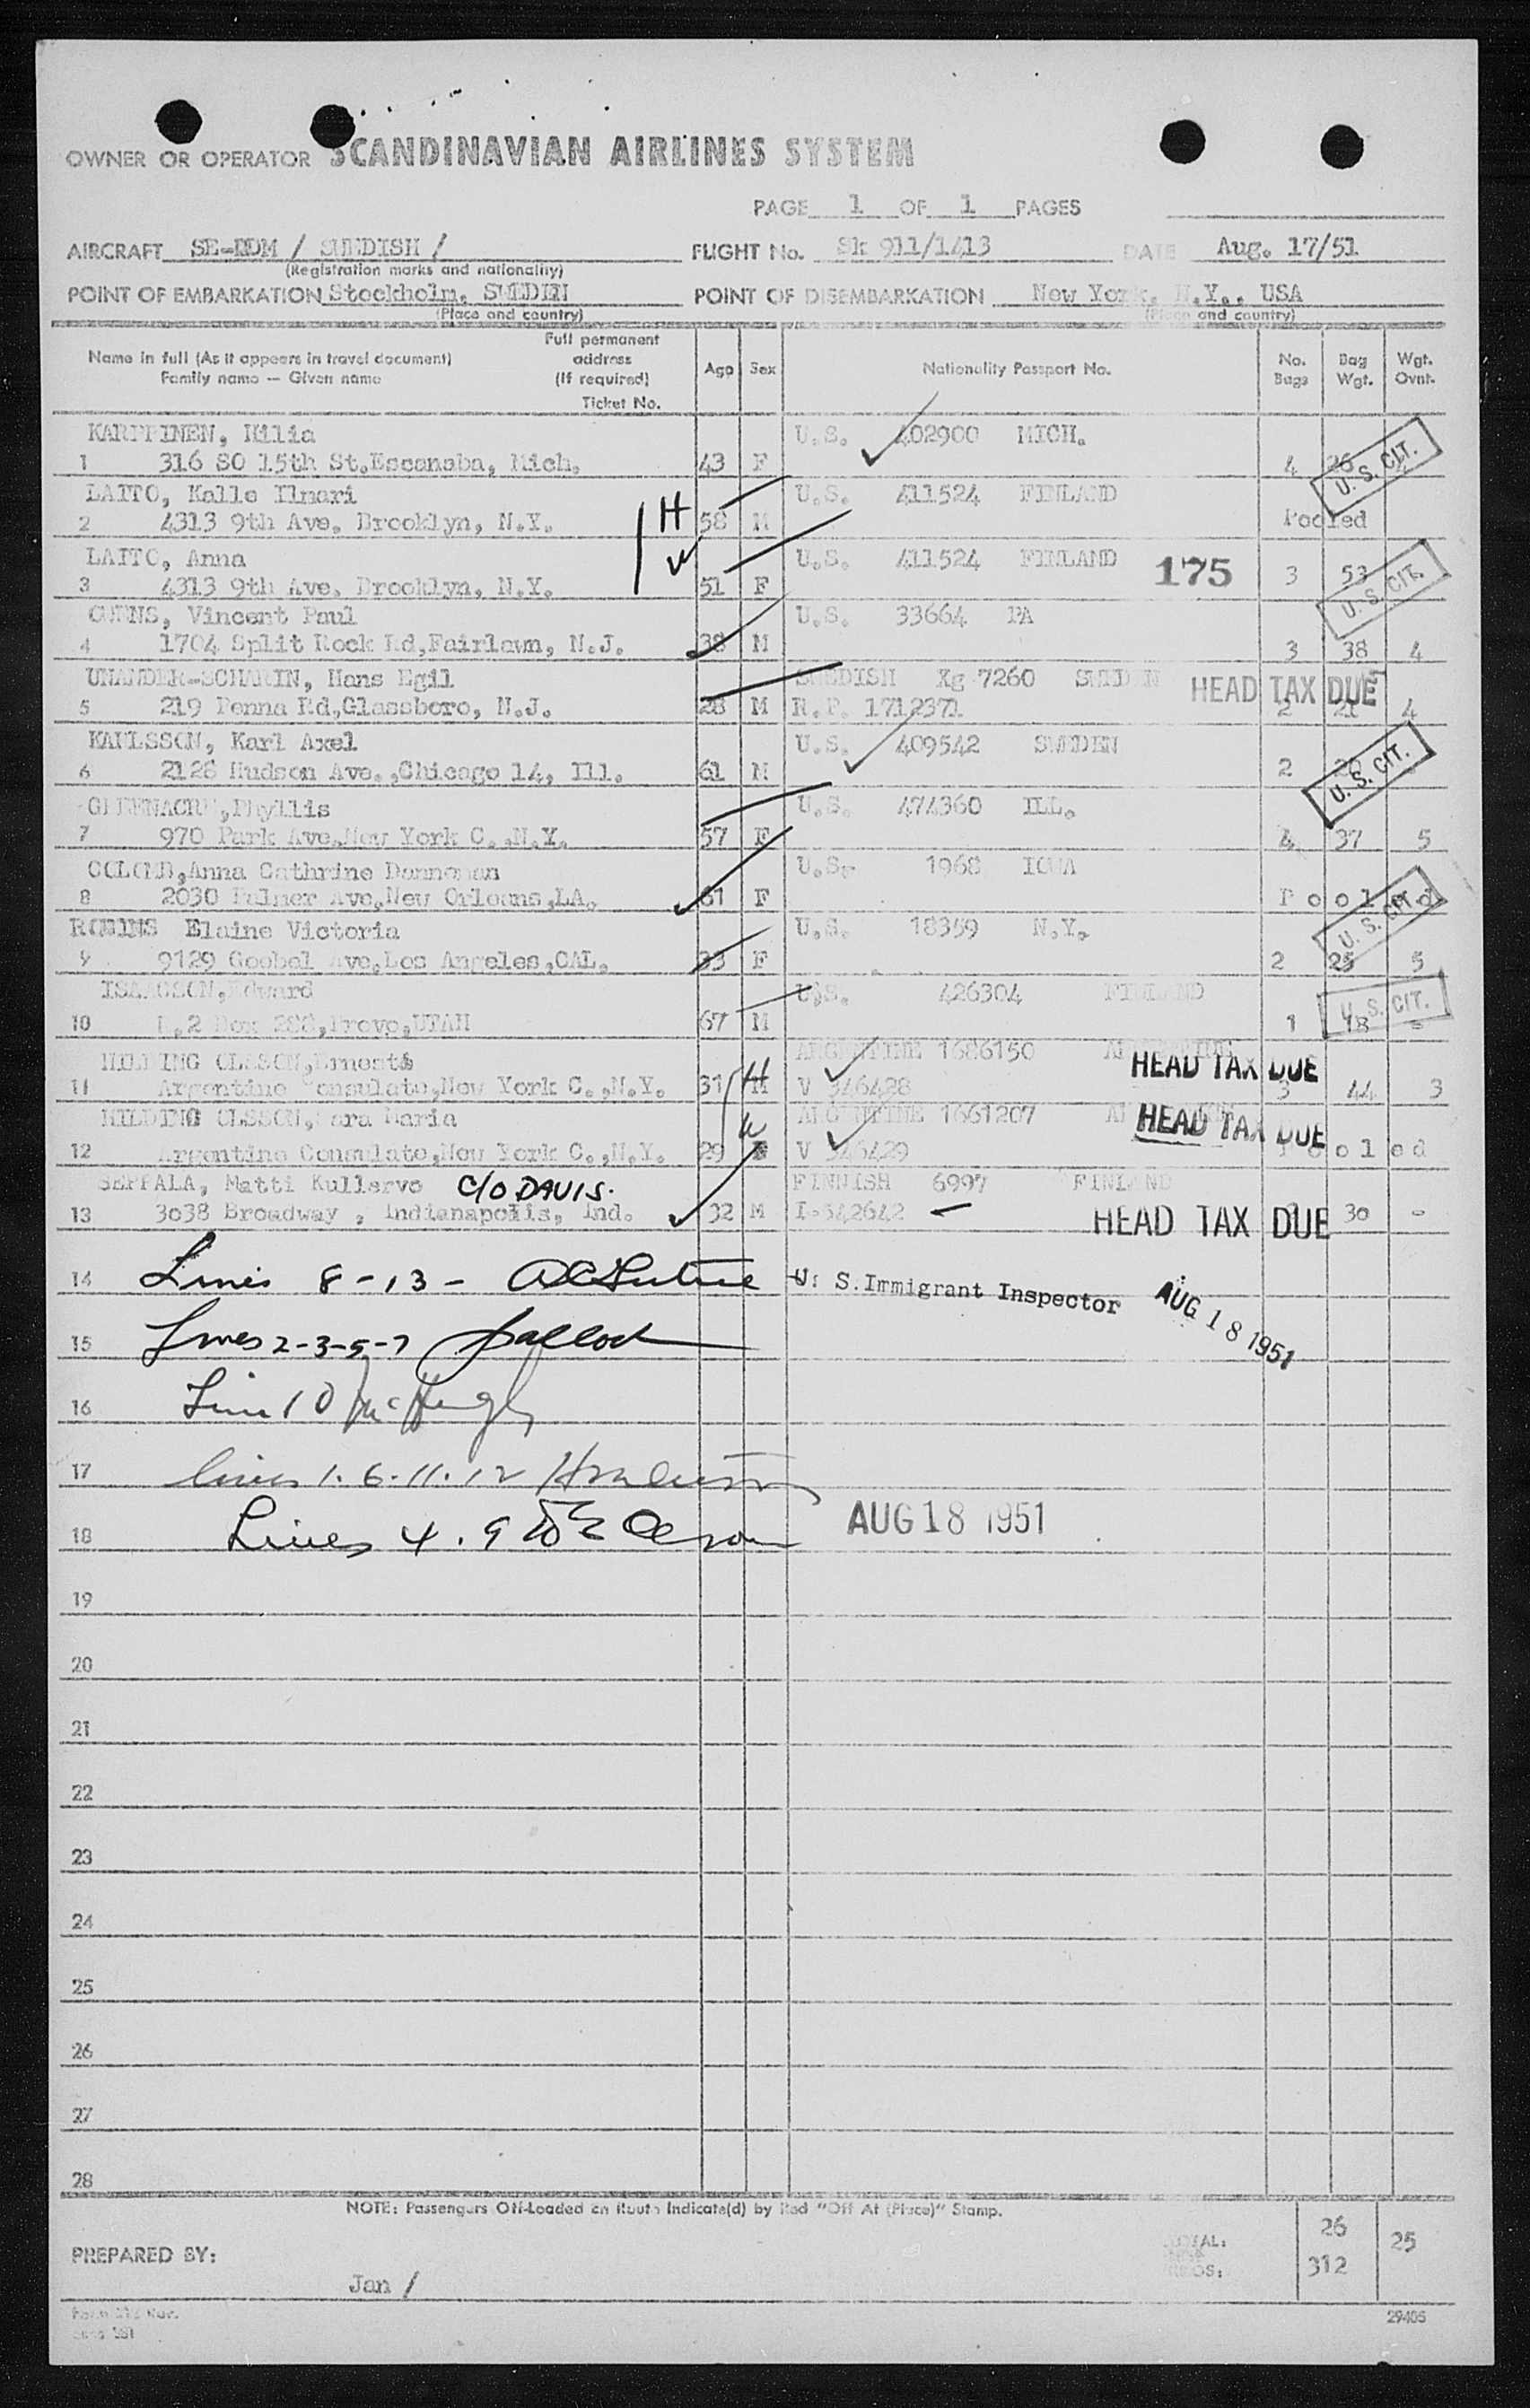 OWNER OR OPERATOR SCANDINAVIAN AIRLINES SYSTEM
PAGE 1 OF 1 PAGES
AIRCRAFT SE-BDM / SWEDISH / FLIGHT No. Sk 911/1413 DATE Aug. 17/51
(Registration marks and nationality)
POINT OF EMBARKATION Stockholm, SWEDEN POINT OF DISEMBARKATION New York, N.Y., USA
(Place and country) (Place and country)
Name in full (As it appears in travel document) Family name — Given name Full permanent address (If required) Ticket No. Age Sex Nationality Passport No. No. Bags Bag Wgt. Wgt. Ovnt.
KARPPINEN, Hilia U.S. 402900 MICH.
1 316 SO 15th St.Escanaba, Mich. 43 F 4 26 U.S. CIT.
LAITO, Kalle Ilmari U.S. 411524 FINLAND
2 4313 9th Ave. Brooklyn, N.Y. H 58 M Pooled
LAITO, Anna W U.S. 411524 FINLAND 175
3 4313 9th Ave. Brooklyn, N.Y. 51 F 3 53 U.S. CIT.
Vincent Paul U.S. 33664 PA
4 1704 Split Rock Rd,Fairlawn, N.J. 38 M 3 38 4
UNANDER-SCHARIN, Hans Egil SWEDISH Xg 7260 SWEDEN HEAD TAX DUE
5 219 Penna Rd,Glassboro, N.J. 28 M R.P. 1712371 2 21 4
KARLSSON, Karl Axel U.S. 409542 SWEDEN
6 2128 Hudson Ave.,Chicago 14, Ill. 61 M 2 20 U.S. CIT.
GREENACRE,Phyllis U.S. 474360 ILL.
7 970 Park Ave,New York C.,N.Y. 57 F 4 37 5
COLOMB,Anna Cathrine Danneman U.S. 1968 IOWA
8 2030 Palmer Ave,New Orleans,LA. 61 F Pooled U.S. CIT.
ROBINS Elaine Victoria U.S. 18359 N.Y.
9 9129 Goebel Ave,Los Angeles,CAL. 33 F 2 25 5
ISAACSON,Edward U.S. 426304 FINLAND
10 R.2 Box 288,Provo,UTAH 67 M 1 18 - U.S. CIT.
HILDING OLSSON,Ernesto ARGENTINE 1686150 HEAD TAX DUE
11 Argentine Consulate,New York C.,N.Y. 31 H M V 346428 3 44 3
HILDING OLSSON,Sara Maria ARGENTINE 1661207 HEAD TAX DUE
12 Argentine Consulate,New York C.,N.Y. 29 W F V 346429 Pooled
SEPPALA, Matti Kullervo C/O DAVIS. FINNISH 6997 FINLAND
13 3038 Broadway , Indianapolis, Ind. 32 M I-342642 HEAD TAX DUE 30 -
14 Lines 8-13- U. S. Immigrant Inspector AUG 18 1951
15 Lines 2-3-5-7
16 Line 10 McHugh
17 lines 1.6.11.12
18 Lines 4.9 AUG 18 1951
19
20
21
22
23
24
25
26
27
28
NOTE: Passengers Off-Loaded En Route Indicate(d) by Red "Off At (Place)" Stamp.
TOTAL: 26 25
PREPARED BY: 312
Jan /
29405